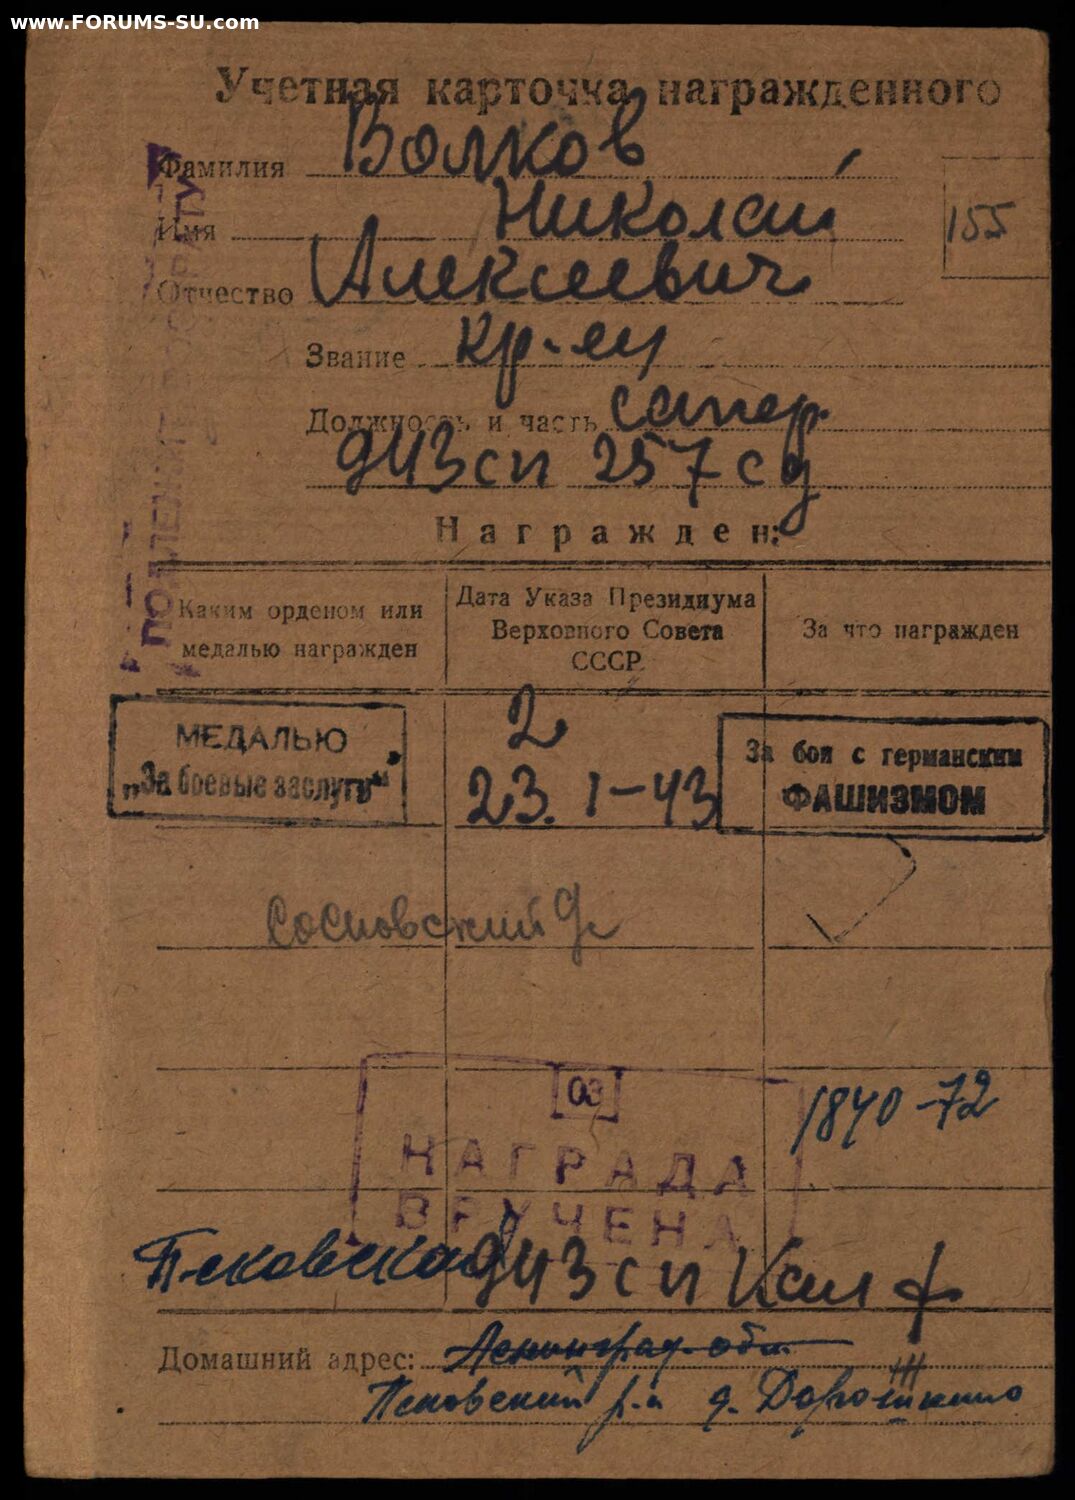 www.FORUMS-SU.com
Учетная карточка награжденного
Фамилия Волков
Имя Николай
155
Отчество Алексеевич
Звание кр-ец
Должность и часть сапер
943 сп 257 сд
Награжден:
Каким орденом или медалью награжден
Дата Указа Президиума Верховного Совета СССР
За что награжден
МЕДАЛЬЮ
„За боевые заслуги“
2
23. 1-43
За бои с германским
ФАШИЗМОМ
Сосновский
03
1840-72
НАГРАДА
ВРУЧЕНА
Псковская
943 сп Кал ф
Домашний адрес: Ленинград. обл.
Псковский р-н д.
ПОДЛЕЖИТ